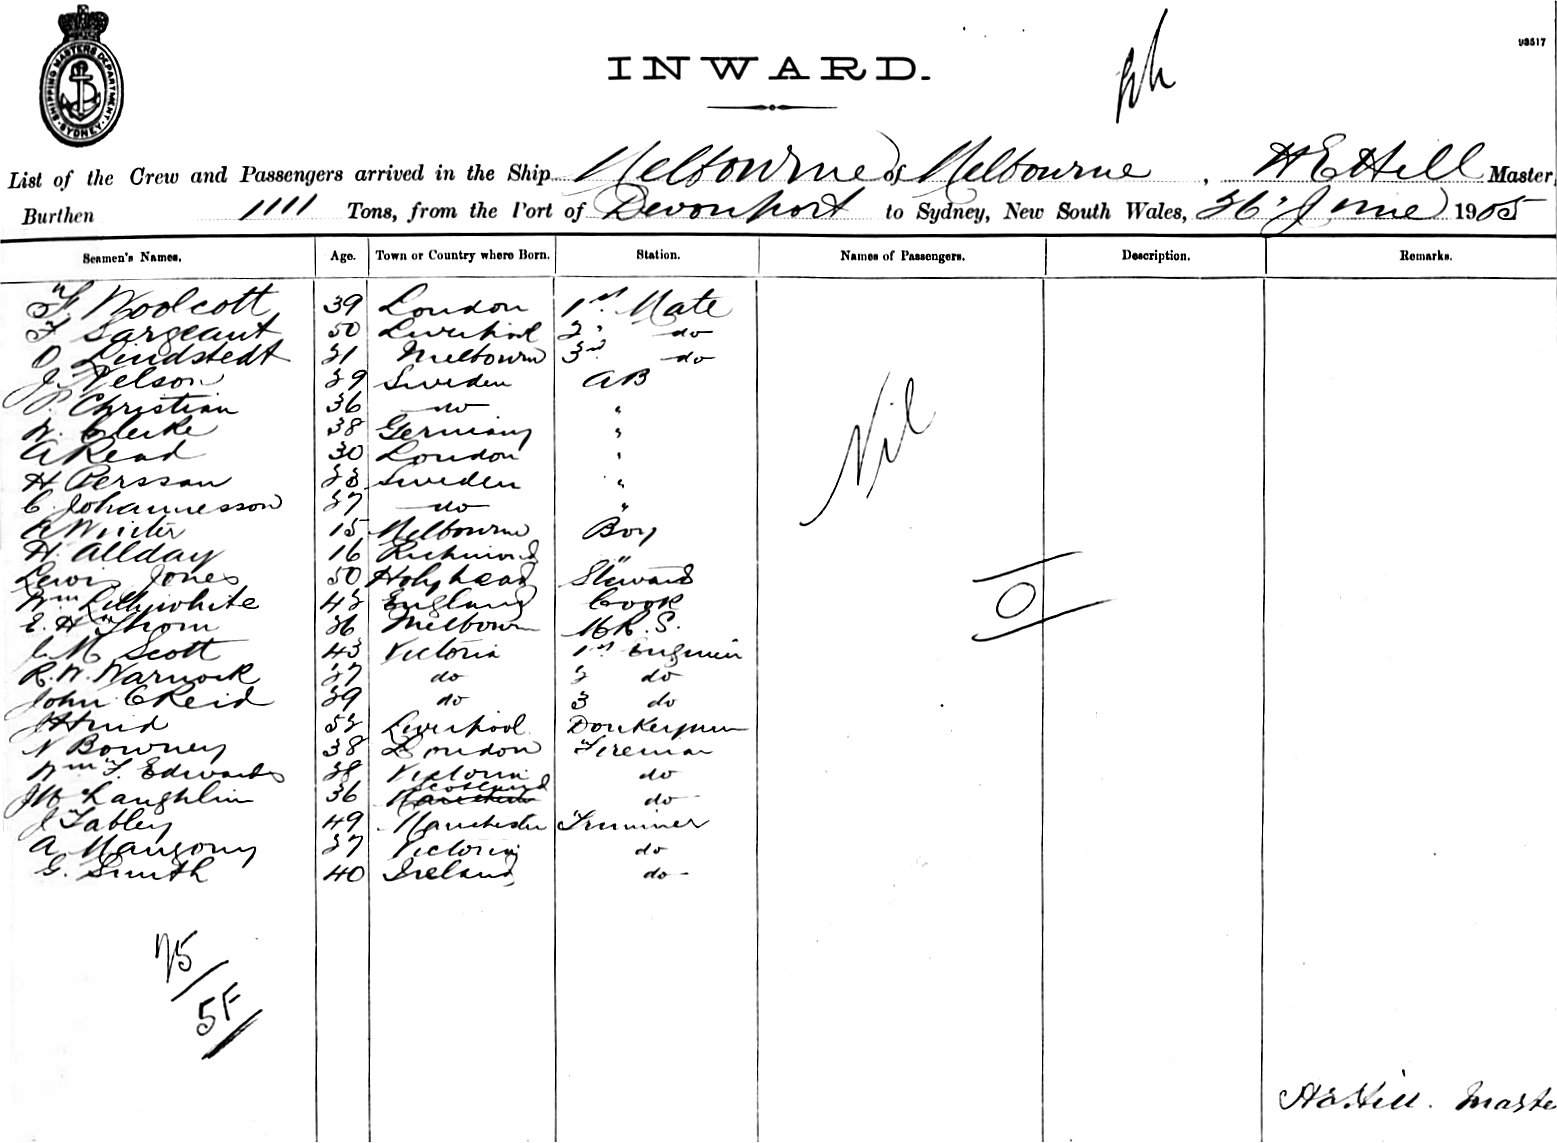 SHIPPING MASTERS DEPARTMENT
SYDNEY
93517
INWARD.
List of the Crew and Passengers arrived in the Ship Melbourne of Melbourne, H E Hill Master,
Burthen 1111 Tons, from the Port of Devonport to Sydney, New South Wales, 26 June 1905
Seamen's Names. Age. Town or Country where Born. Station. Names of Passengers. Description. Remarks.
F. Woolcott 39 London 1st Mate
F Sargeant 50 Liverpool 2 " do
O Lindstedt 31 Melbourne 3rd do
J. Nelson 39 Sweden AB
P. Christian 36 do "
W. Clerke 38 Germany "
A Read 30 London "
H Persson 33 Sweden "
C. Johannesson 37 do "
A Winter 15 Melbourne Boy
H. Allday 16 Richmond "
Lewis Jones 50 Holyhead Steward
Wm Lillywhite 42 England Cook
E. H Thom 26 Melbourne M R. S.
M Scott 43 Victoria 1st Engineer
R. W. Warnock 37 do 2 do
John C Reid 39 do 3 do
J Hind 52 Liverpool Donkeyman
N Bowney 38 London Fireman
Wm F. Edwards 38 Victoria do
J McLaughlin 36 Scotland do
J Tabley 49 Manchester Trimmer
A Mangony 37 Victoria do
G. Smith 40 Ireland do
Nil
O
25/
5F/
H E Hill. Maste